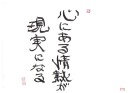 心にある情熱が
現実になる